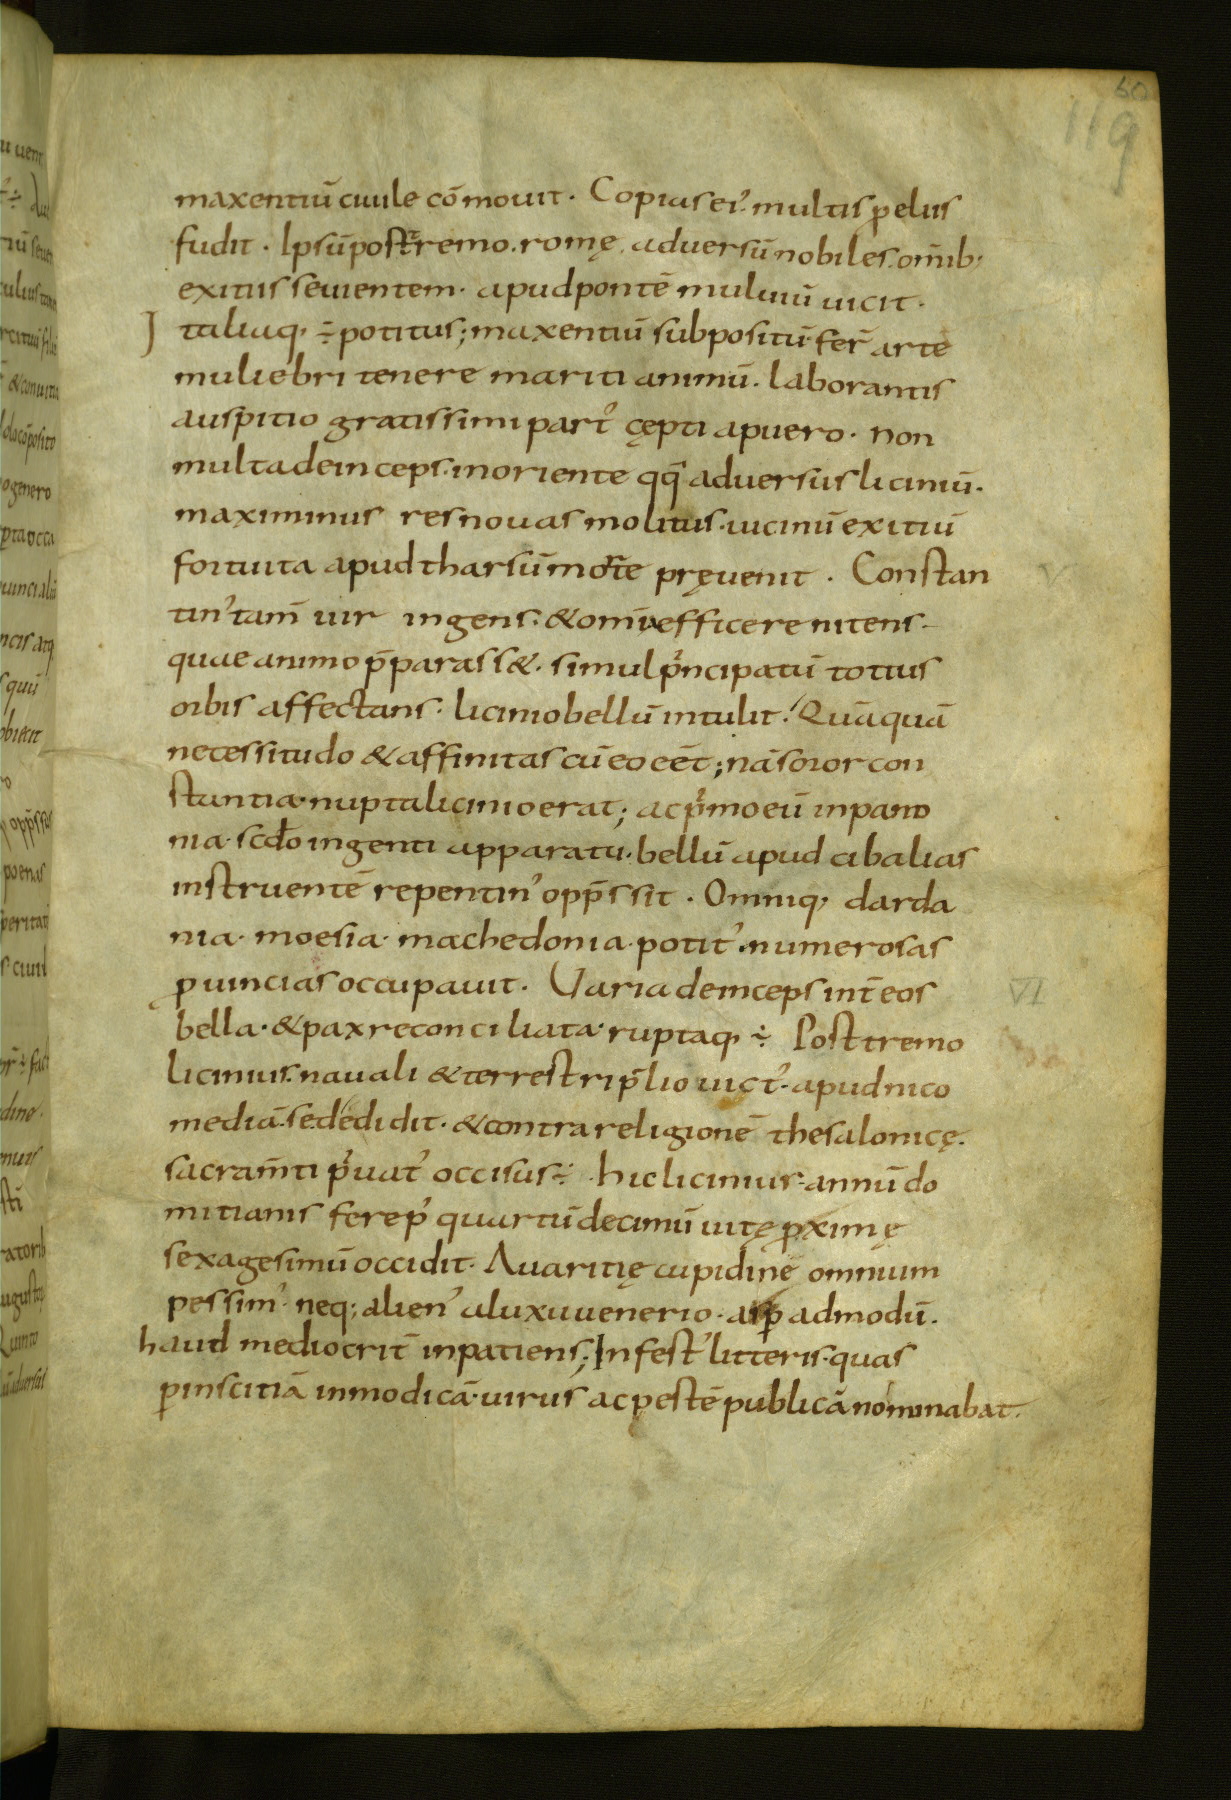 60
119
maxentiū ciuile cōmouit. Copias ei᷒ multis p̄eliis
fudit. Ipsū postremo. romę. aduersū nobiles. om̄ib;
exitiis seuientem. apud pontē muluiū uicit.
Italiaq, ÷ potitus; maxentiū subpositū fer̄ arte
muliebri tenere mariti animū. laborantis
auspitio gratissimi part᷒ cępti a puero. non
multa deinceps. in oriente qq̄ aduersus liciniū.
maximinus res nouas molitus. uicinū exitiū
fortuita apud tharsū morte pręuenit. Constan
tin᷒ tam̄ uir ingens. & om̄ia efficere nitens.
quae animo p̄parass&. simul p͛ncipatū totius
orbis affectans. licinio bellū intulit. Quāquā
necessitudo & affinitas cū eo eēt; nā soror con
stantia. nupta licinio erat; ac p͛mo eū in pano
nia. scdo ingenti apparatu. bellū apud cibalias
instruentē repentin᷒ opp̄ssit. Omniq, darda
nia. moesia. machedonia. potit᷒. numerosas
ꝓuincias occupauit. Varia deinceps int̄ eos
bella. & pax reconciliata. ruptaq, ÷ Posttremo
licinius. nauali & terrestri p̄lio uict᷒. apud nico
mediā. se dedidit. & contra religionē thesalonicę.
sacram̄ti p͛uat᷒ occisus ÷ hic licinius. annū do
mitianis fere p᷒ quartū decimū uitę ꝓximę
sexagesimū occidit. Auaritię cupidinē omnium
pessim᷒. neq; alien᷒ a luxu uenerio. asp̄ admodū.
haud mediocrit̄ inpatiens; Infest᷒ litteris. quas
ꝑ inscitiā inmodicā. uirus, ac pestē publicā nominabat.
V
VI